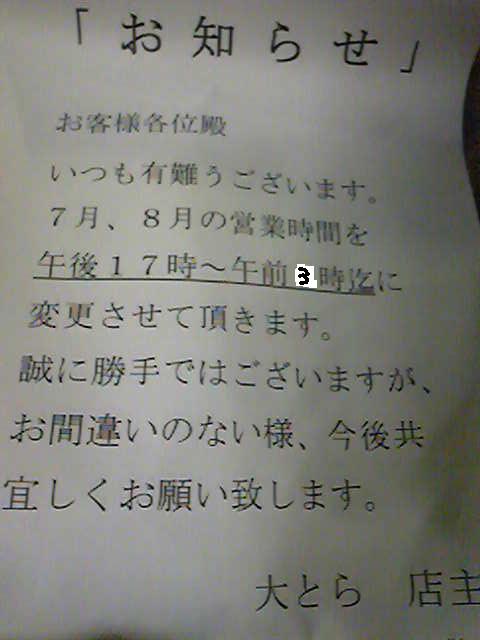 「お知らせ」
お客様各位殿
いつも有難うございます。
７月、８月の営業時間を
午後１７時～午前３時迄に
変更させて頂きます。
誠に勝手ではございますが、
お間違いのない様、今後共
宜しくお願い致します。
大とら　店主